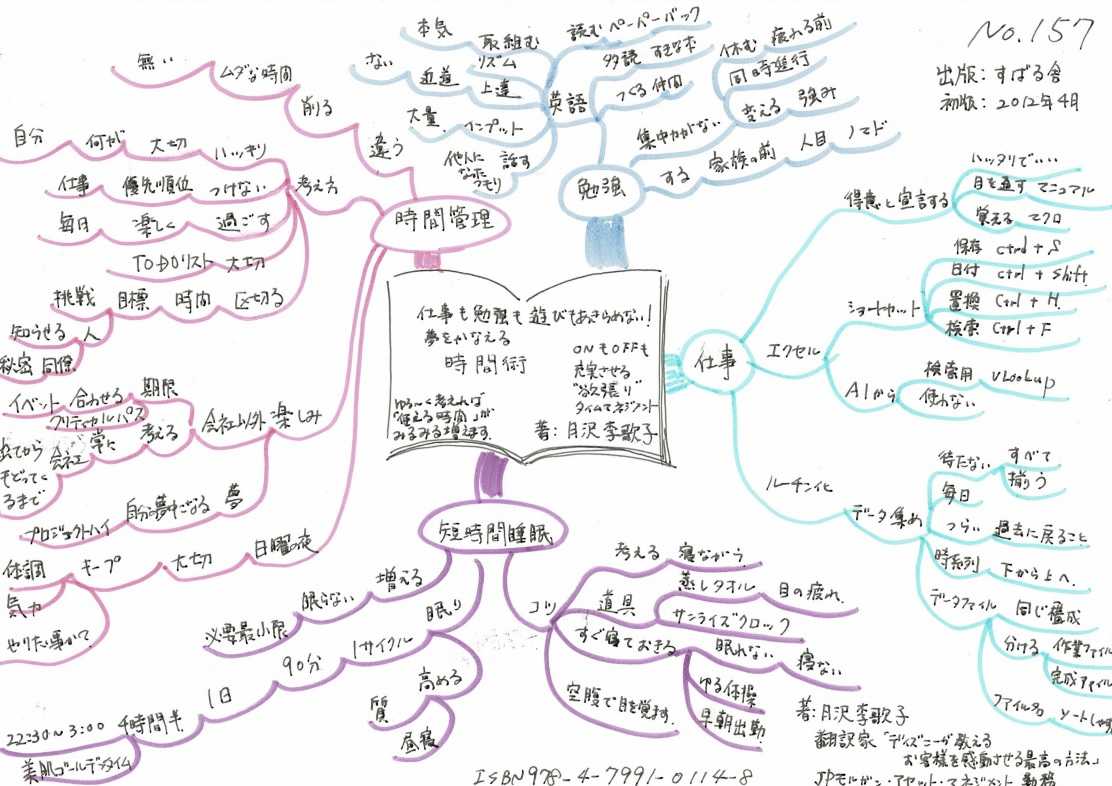 No.157
出版：すばる舎
初版：2012年4月
仕事も勉強も遊びもあきらめない！
夢をかなえる
時間術
ONもOFFも
充実させる
"欲張り"
タイムマネジメント
ゆるく考えれば
"使える時間"が
みるみる増えます．
著：月沢李歌子
時間管理
違う
削る
ムダな時間
無い
考え方
ハッキリ
大切
何が
自分
つけない
優先順位
仕事
過ごす
楽しく
毎日
大切
TODOリスト
区切る
時間
目標
挑戦
人
知らせる
秘密 同僚
楽しみ
会社以外
期限
合わせる
イベント
クリティカルパス
考える
常に
会社
出てから
もどってく
るまで
夢
自分が夢中になる
プロジェクトハイ
日曜の夜
大切
キープ
体調
気力
やりたい事が？
勉強
英語
読む ペーパーバック
多読 すきな本
つくる 仲間
取組む
本気
リズム
上達
近道
ない
インプット
大量
話す
他人に
なった
つもり
集中力がない
休む 疲れる前
同時進行
変える 強み
する 家族の前 人目 ノマド
仕事
得意と宣言する
ハッタリで・・・
目を通す マニュアル
覚える マクロ
エクセル
ショートカット
保存 ctrl + S
日付 ctrl + shift
置換 Ctrl + H
検索 Ctrl + F
A1から
検索用 VLookup
使わない
ルーチン化
データ集め
待たない すべて
揃う
毎日
つらい 過去に戻ること
時系列 下から上へ．
データファイル 同じ構成
分ける 作業ファイル
完成ファイル
ファイル名
短時間睡眠
増える
眠らない
必要最小限
眠り
1サイクル
90分
1日
4時間半
22:30～3:00
美肌ゴールデンタイム
高める
質
昼寝
コツ
考える 寝ながら
道具
蒸しタオル 目の疲れ．
サンライズクロック
すぐ寝ておきる
眠れない 寝ない
ゆる体操
早朝出勤
空腹で目を覚ます．
著：月沢李歌子
翻訳家「ディズニーが教える
お客様を感動させる最高の方法」
JPモルガン・アセット・マネジメント 勤務
ISBN978-4-7991-0114-8